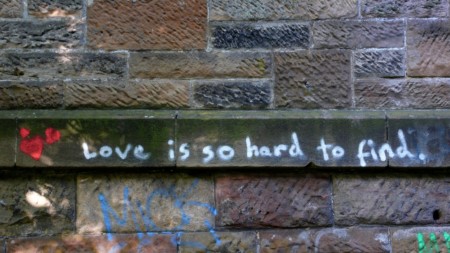 Love is so hard to find.